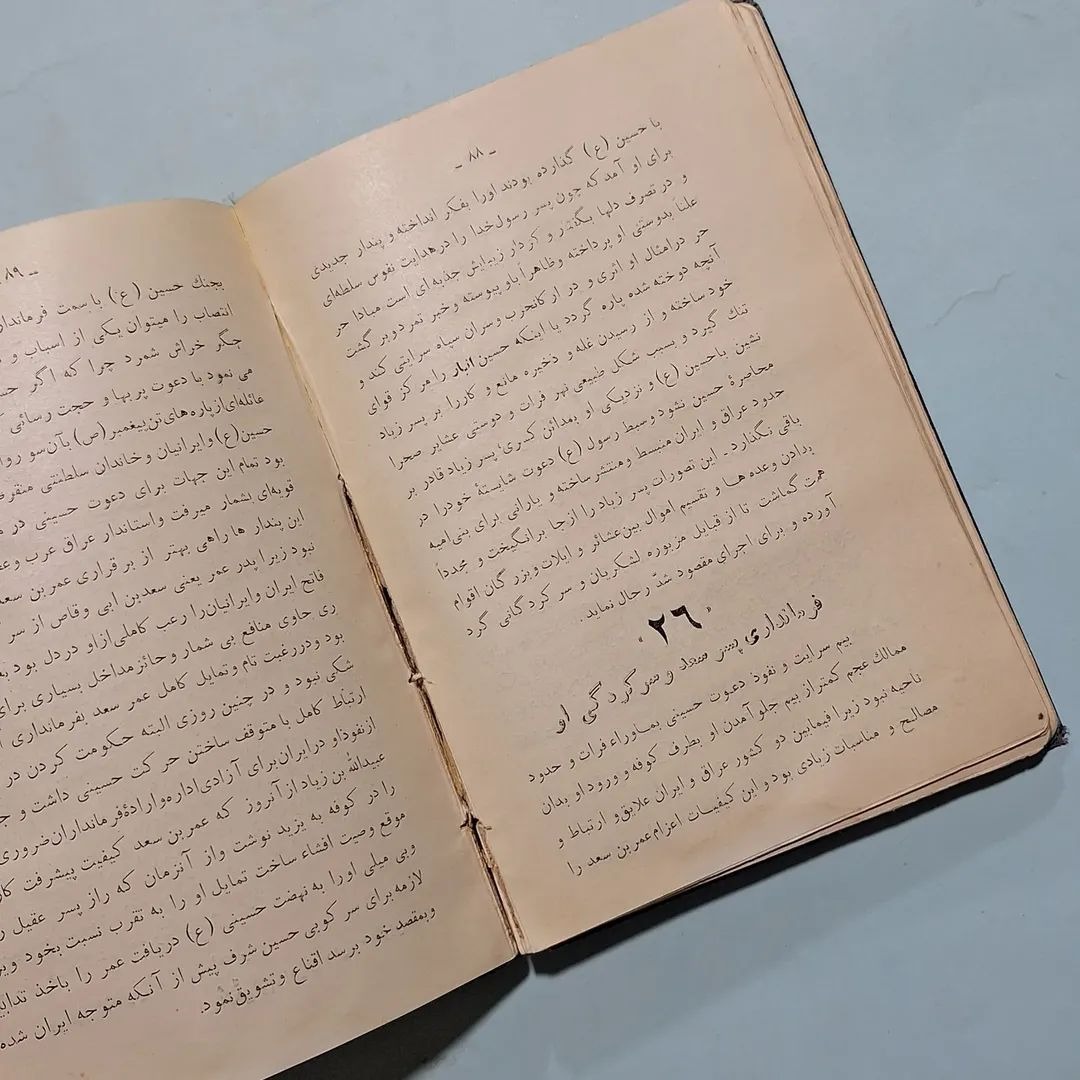 ـ ۸۸ ـ
با حسین (ع) گذارده بودند اورا بفکر انداخته و پندار جدیدی
برای او آمد که چون پسر رسول خدا را در هدایت نفوس سلطه‌ای
و در تصرف دلها بگفتار و کردار زیبایش جذبه‌ای است مبادا حر
علناً بدوستی او پرداخته وظاهراً باو پیوسته وخبر تمرد وبر گشت
حر در امثال او اثری و در ار کانحرب وسران سپاه سرایتی کند و
آنچه دوخته شده پاره گردد یا اینکه حسین انبار را مر کز قوای
خود ساخته و از رسیدن غله و ذخیره مانع و کاررا بر پسر زیاد
تنك گیرد و بسبب شکل طبیعی نهر فرات و دوستی عشایر صحرا
نشین باحسین (ع) و نزدیکی او بمدائن کسری؛ پسر زیاد قادر بر
محاصرهٔ حسین نشود وسبط رسول (ع) دعوت شایستهٔ خودرا در
حدود عراق و ایران منبسط ومنتشر ساخته و یارانی برای بنی امیه
باقی نگذارد ـ این تصورات پسر زیاد را ازجا برانگیخت و مجدداً
بدادن وعده هـا و تقسیم اموال بین عشائر و ایلات وبزر گان اقوام
همت گماشت تا از قبایل مزبوره لشکریان و سر کرد گانی گرد
آورده و برای اجرای مقصود شدّ رحال نماید.
«۲۶»
فرمانداری پسر سعد و سر کرد گی او
بیم سرایت و نفوذ دعوت حسینی بمـاوراء فرات و حدود
ممالك عجم کمتر از بیم جلو آمدن او بطرف کوفه و ورود او بدان
ناحیه نبود زیرا فیمابین دو کشور عراق و ایران علایق و ارتباط و
مصالح و مناسبات زیادی بود و این کیفیـات اعزام عمر بن سعد را
ـ ۸۹
بجنك حسین (ع) با سمت فرماندار
انتصاب را میتوان یکی از اسباب و
جگر خراش شمرد چرا که اگر
می نمود با دعوت پر بها و حجت رسائی
عائله‌ای از پاره های تن پیغمبر (ص) بآن سو
حسین (ع) وایرانیان و خاندان سلطنتی
بود تمام این جهات برای دعوت حسینی در
قویه‌ای بشمار میرفت واستاندار عراق عرب
این پندار ها راهی بهتر از بر قراری عمر بن سعد
نبود زیرا پدر عمر یعنی سعد بن ابی وقاص از سر
فاتح ایران و ایرانیان را رعب کاملی از او در دل بود
ری حاوی منافع بی شمار و حائز مداخل بسیاری برای
بود و در رغبت تام و تمایل کامل عمر سعد بفرمانداری
شکی نبود و در چنین روزی البته حکومت کردن در
ارتباط کامل با متوقف ساختن حر کت حسینی داشت و
از نفوذ او در ایران برای آزادی اداره و ارادهٔ فرمانداران ضروری
عبیدالله بن زیاد از آنروز که عمر بن سعد کیفیت پیشرفت
را در کوفه به یزید نوشت واز آنزمان که راز پسر عقیل
موقع وصیت افشاء ساخت تمایل او را به تقرب نسبت بخود
وبی میلی او را به نهضت حسینی (ع) دریافت عمر را باخذ
لازمه برای سر کوبی حسین شرف پیش از آنکه متوجه ایران شده
وبمقصد خود برسد اقناع و تشویق نمود.